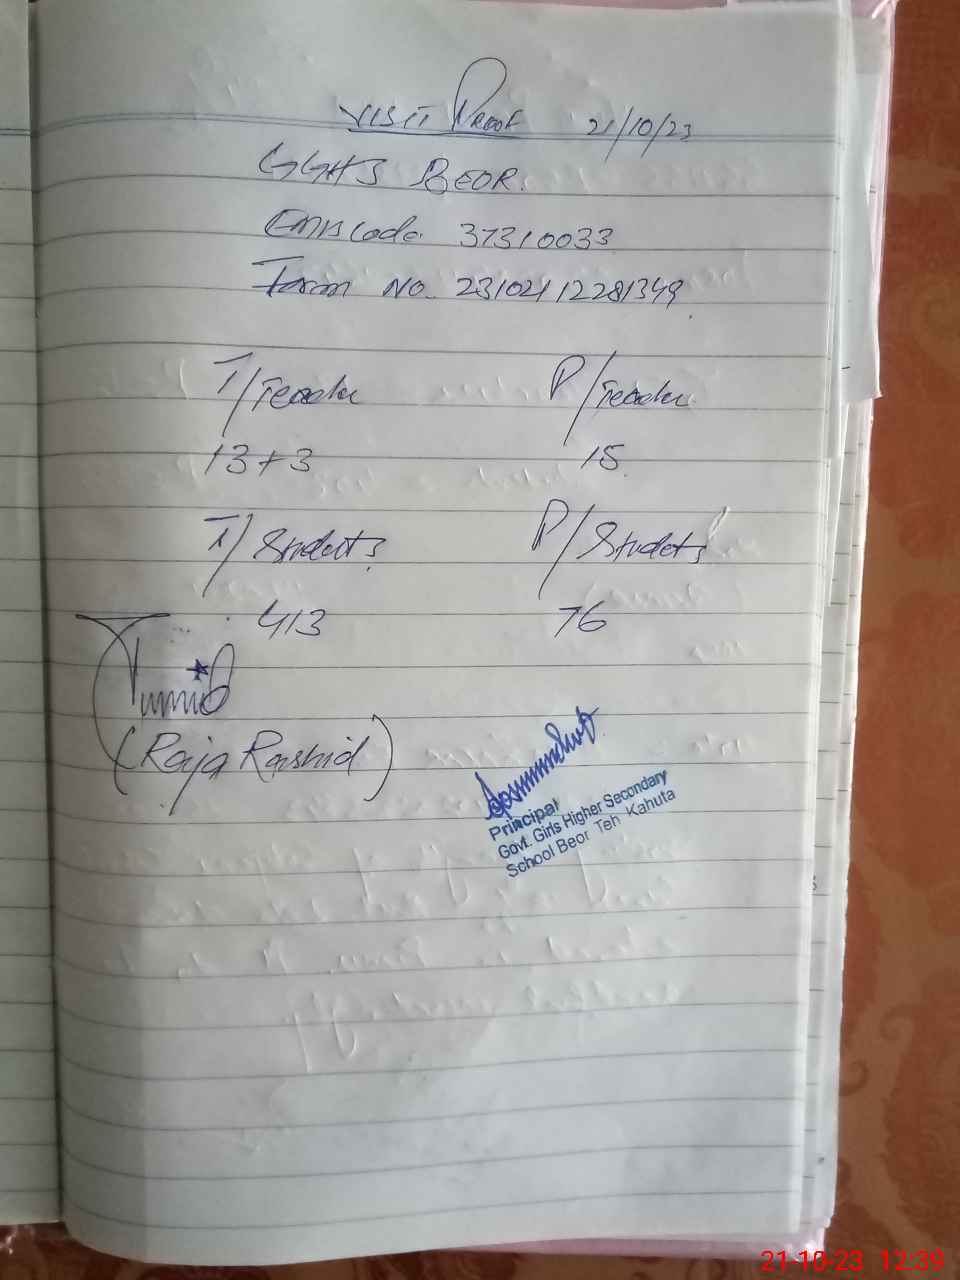 VISIT Proof 21/10/23
GGHS BEOR.
EMIS Code 37310033
Form No. 23102112281349
T/Teacher P/Teacher
13+3 15
T/Students P/Students
413 76
(Raja Rashid)
Principal
Govt. Girls Higher Secondary
School Beor Teh Kahuta
21-10-23 12:39